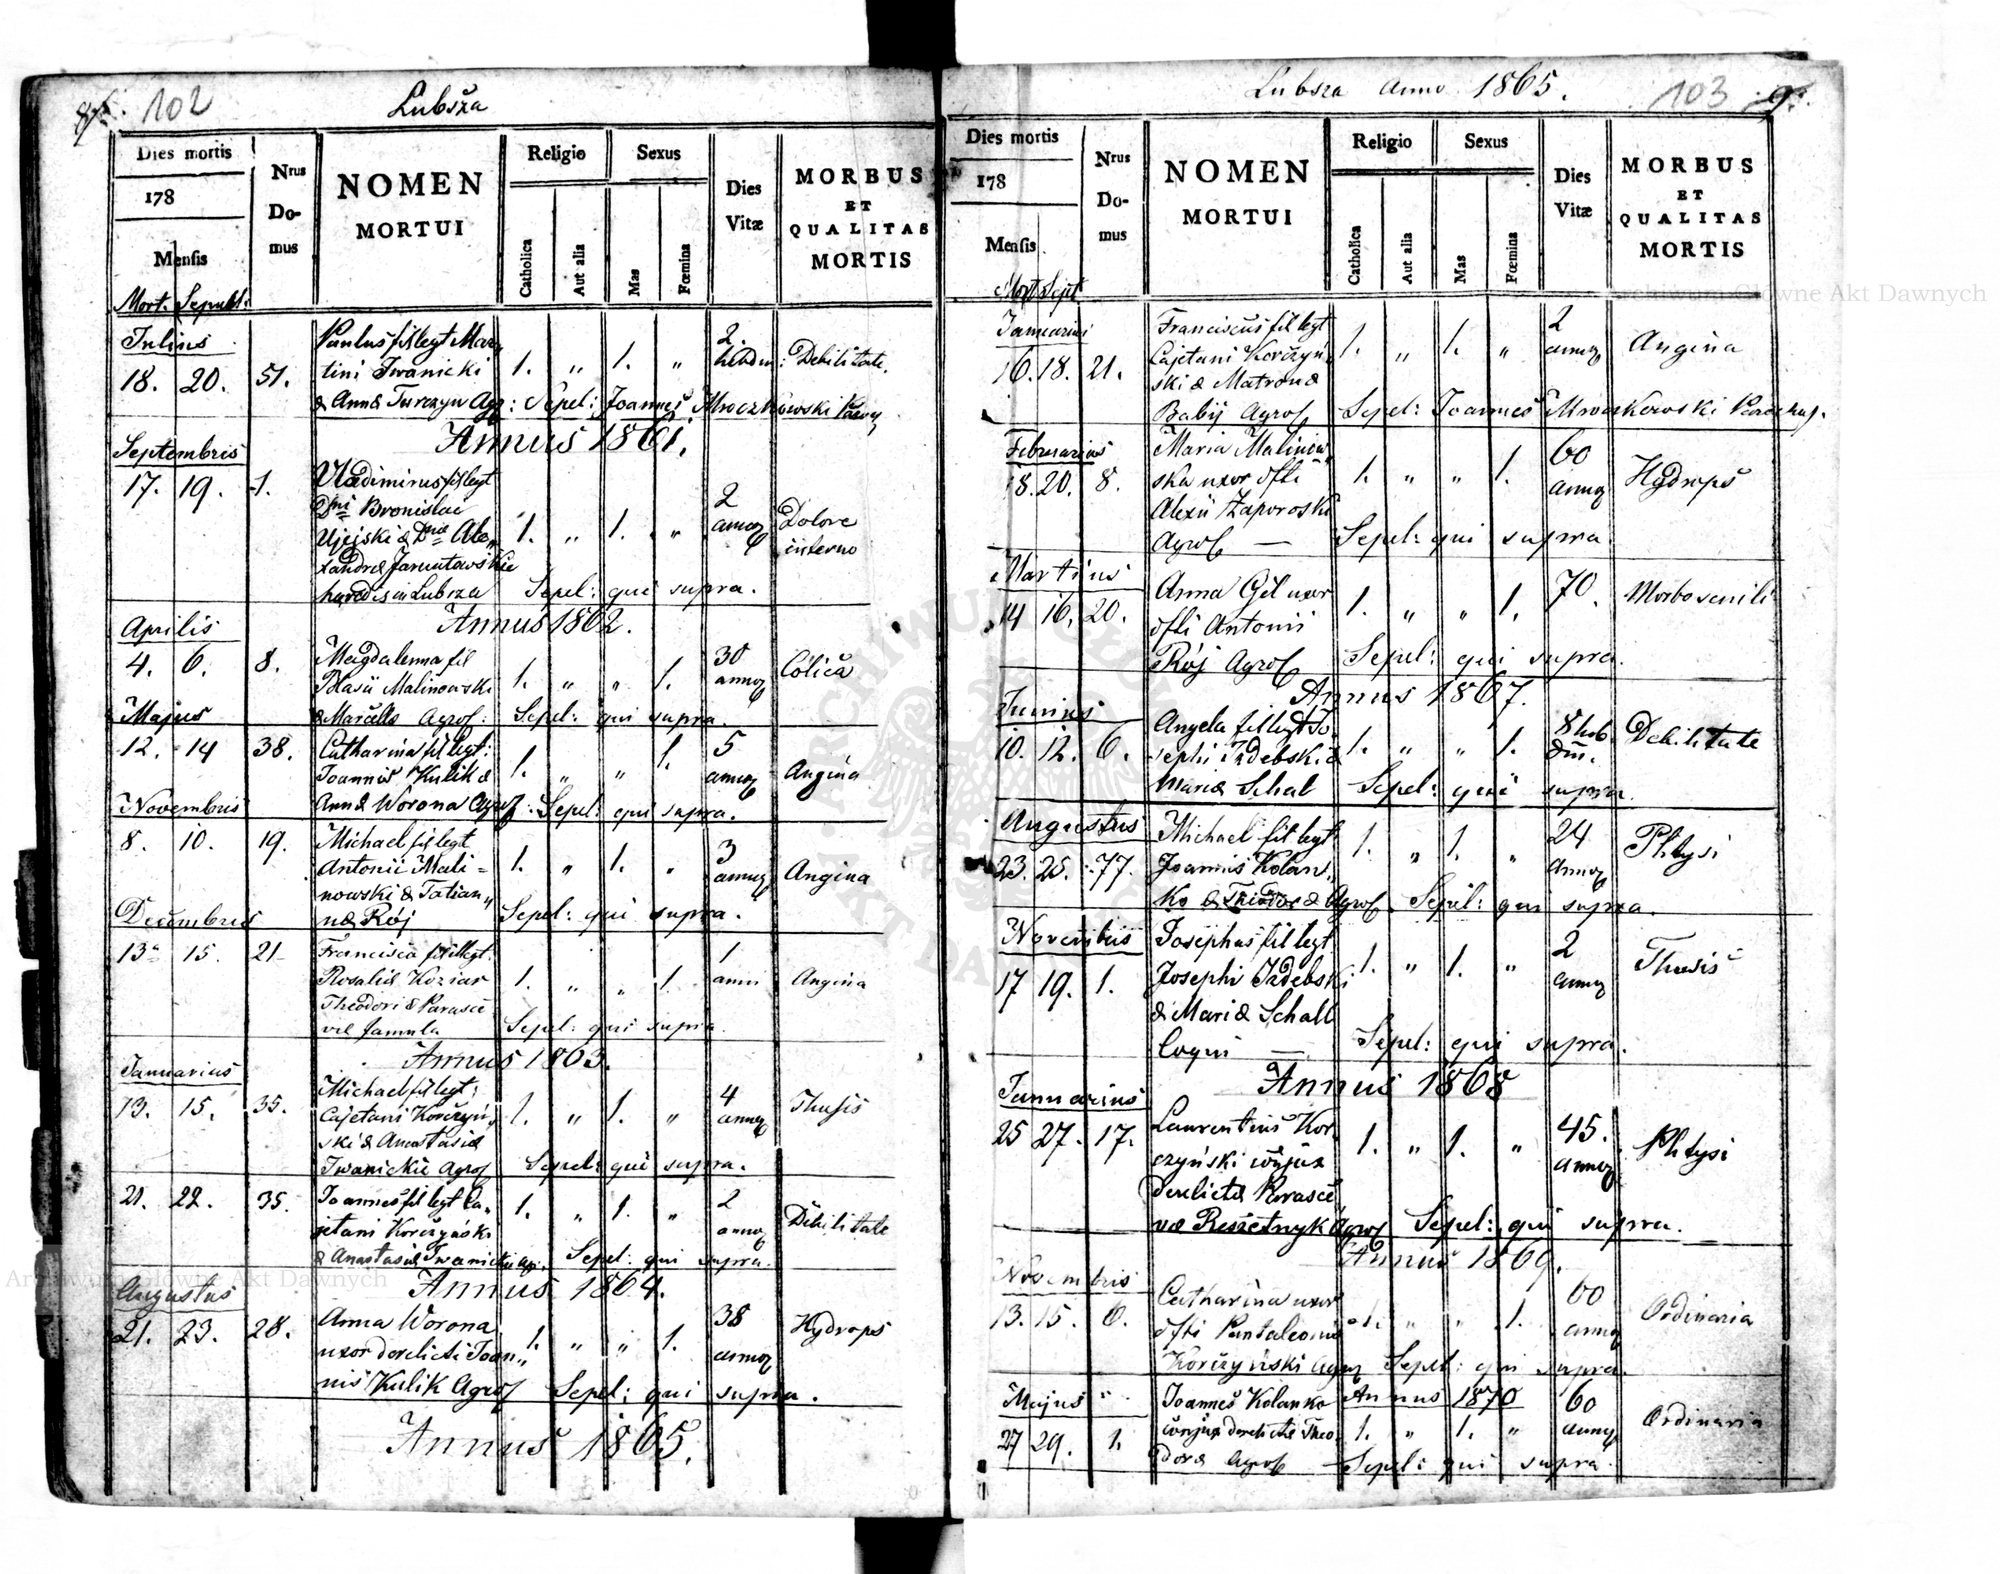 102
Lubsza
Dies mortis
178
Mensis
Mort. Sepult:
Nrus
Do-
mus
NOMEN
MORTUI
Religio
Catholica
Aut alia
Sexus
Mas
Fœmina
Dies
Vitæ
MORBUS
ET
QUALITAS
MORTIS
Julius
18. 20. 51.
Paulus fil legt Mar„
tini Iwanicki
& Annæ Turczyn Agr:
1. „ 1. „
2.
Debilitate.
Sepel: Joannes Mroczkowski
Annus 1861.
Septembris
17. 19. 1.
Vladimirus fil legt
Dni Bronislai
Ujejski & Dnæ Ale„
xandræ
hæredis in Lubsza
1. „ 1. „
2
annor
Dolore
interno
Sepel: qui supra.
Annus 1862.
Aprilis
4. 6. 8.
Magdalenna fil
Blasii Malinowski
& Marcella Agrof:
1. „ „ 1.
30
annor
Colica
Sepel: qui supra.
Majus
12. 14 38.
Catharina fil legt:
Joannis Kulik &
Annæ Worona Agrof:
1. „ „ 1.
5
annor
Angina
Sepel: qui supra.
Novembris
8. 10. 19.
Michael fil legt
Antonii Mali =
nowski & Tatian„
næ Rój
1. „ 1. „
3
annor
Angina
Sepel: qui supra.
Decembris
13 15. 21
Francisca fil illegt.
Rosaliæ Koziar
Theodori & Parasce
væ Jamula
1. „ „ 1.
1
anni
Angina
Sepel: qui supra
Annus 1863.
Januarius
13. 15. 35.
Michael fil legt:
Cajetani Korczyń„
ski & Anastasiæ
Iwanickie Agrof
1. „ 1. „
4
annor
Thusis
Sepel: qui supra.
21. 22. 35.
Joannes fil legt Ca„
jetani Korczyński
& Anastasiæ Iwanickie
1. „ 1. „
2
annor
Debilitate
Sepel: qui supra.
Annus 1864.
Augustus
21. 23. 28.
Anna Worona
uxor derelicti Joan„
nis Kulik Agrof
1. „ „ 1.
38
annor
Hydrops
Sepel: qui supra.
Annus 1865.
Lubsza Anno 1865.
103
9.
Dies mortis
178
Mensis
Mort Sept
Nrus
Do-
mus
NOMEN
MORTUI
Religio
Catholica
Aut alia
Sexus
Mas
Fœmina
Dies
Vitæ
MORBUS
ET
QUALITAS
MORTIS
Januarius
16. 18. 21.
Franciscus fil legt
Cajetani Korczyń
ski & Matronæ
Babij Agrof
1. „ 1. „
2
annor
Angina
Sepel: Joannes Mroczkowski Parochus.
Februarius
18. 20. 8.
Maria Malinow„
ska uxor dfti
Alexii Zaporoski
Agrof —
1. „ „ 1.
60
annor
Hydrops
Sepel: qui supra
Martius
14 16. 20.
Anna Gil uxor
dfti Antonii
Rój Agrof
1. „ „ 1.
70.
Morbo senili
Sepel: qui supra.
Annus 1867.
Junius
10. 12. 6.
Angela fil legt Jo„
sephi Izdebski &
Mariæ Schal
1. „ „ 1.
8 heb
dm.
Debilitate
Sepel: qui supra.
Augustus
23. 25. 77.
Michael fil legt
Joannis Kolan„
ko & Theodoræ Agrof
1. „ 1. „
24
annor
Phtysi
Sepel: qui supra.
Novembris
17 19. 1.
Josephus fil legt
Josephi Izdebski
& Mariæ Schall
Coqui —
1. „ 1. „
2
annor
Thusis
Sepel: qui supra.
Annus 1868
Januarius
25 27. 17.
Laurentius Kor„
czyński conjux
derelictæ Parasce
væ Reszetnyk Agrof
1. „ 1. „
45.
annor
Phtysi
Sepel: qui supra.
Annus 1869.
Novembris
13. 15. 6.
Catharina uxor
dfti Pantaleonis
Korczyński Agrof
1. „ „ 1.
60
annor
Ordinaria
Sepel: qui supra.
Annus 1870
Majus
27 29. 1.
Joannes Kolanko
conjux derelictæ Theo
doræ Agrof —
1. „ 1. „
60
annor
Ordinaria
Sepel: qui supra.
Archiwum Główne Akt Dawnych
Archiwum Główne Akt Dawnych
ARCHIWUM GŁÓWNE AKT DAWNYCH